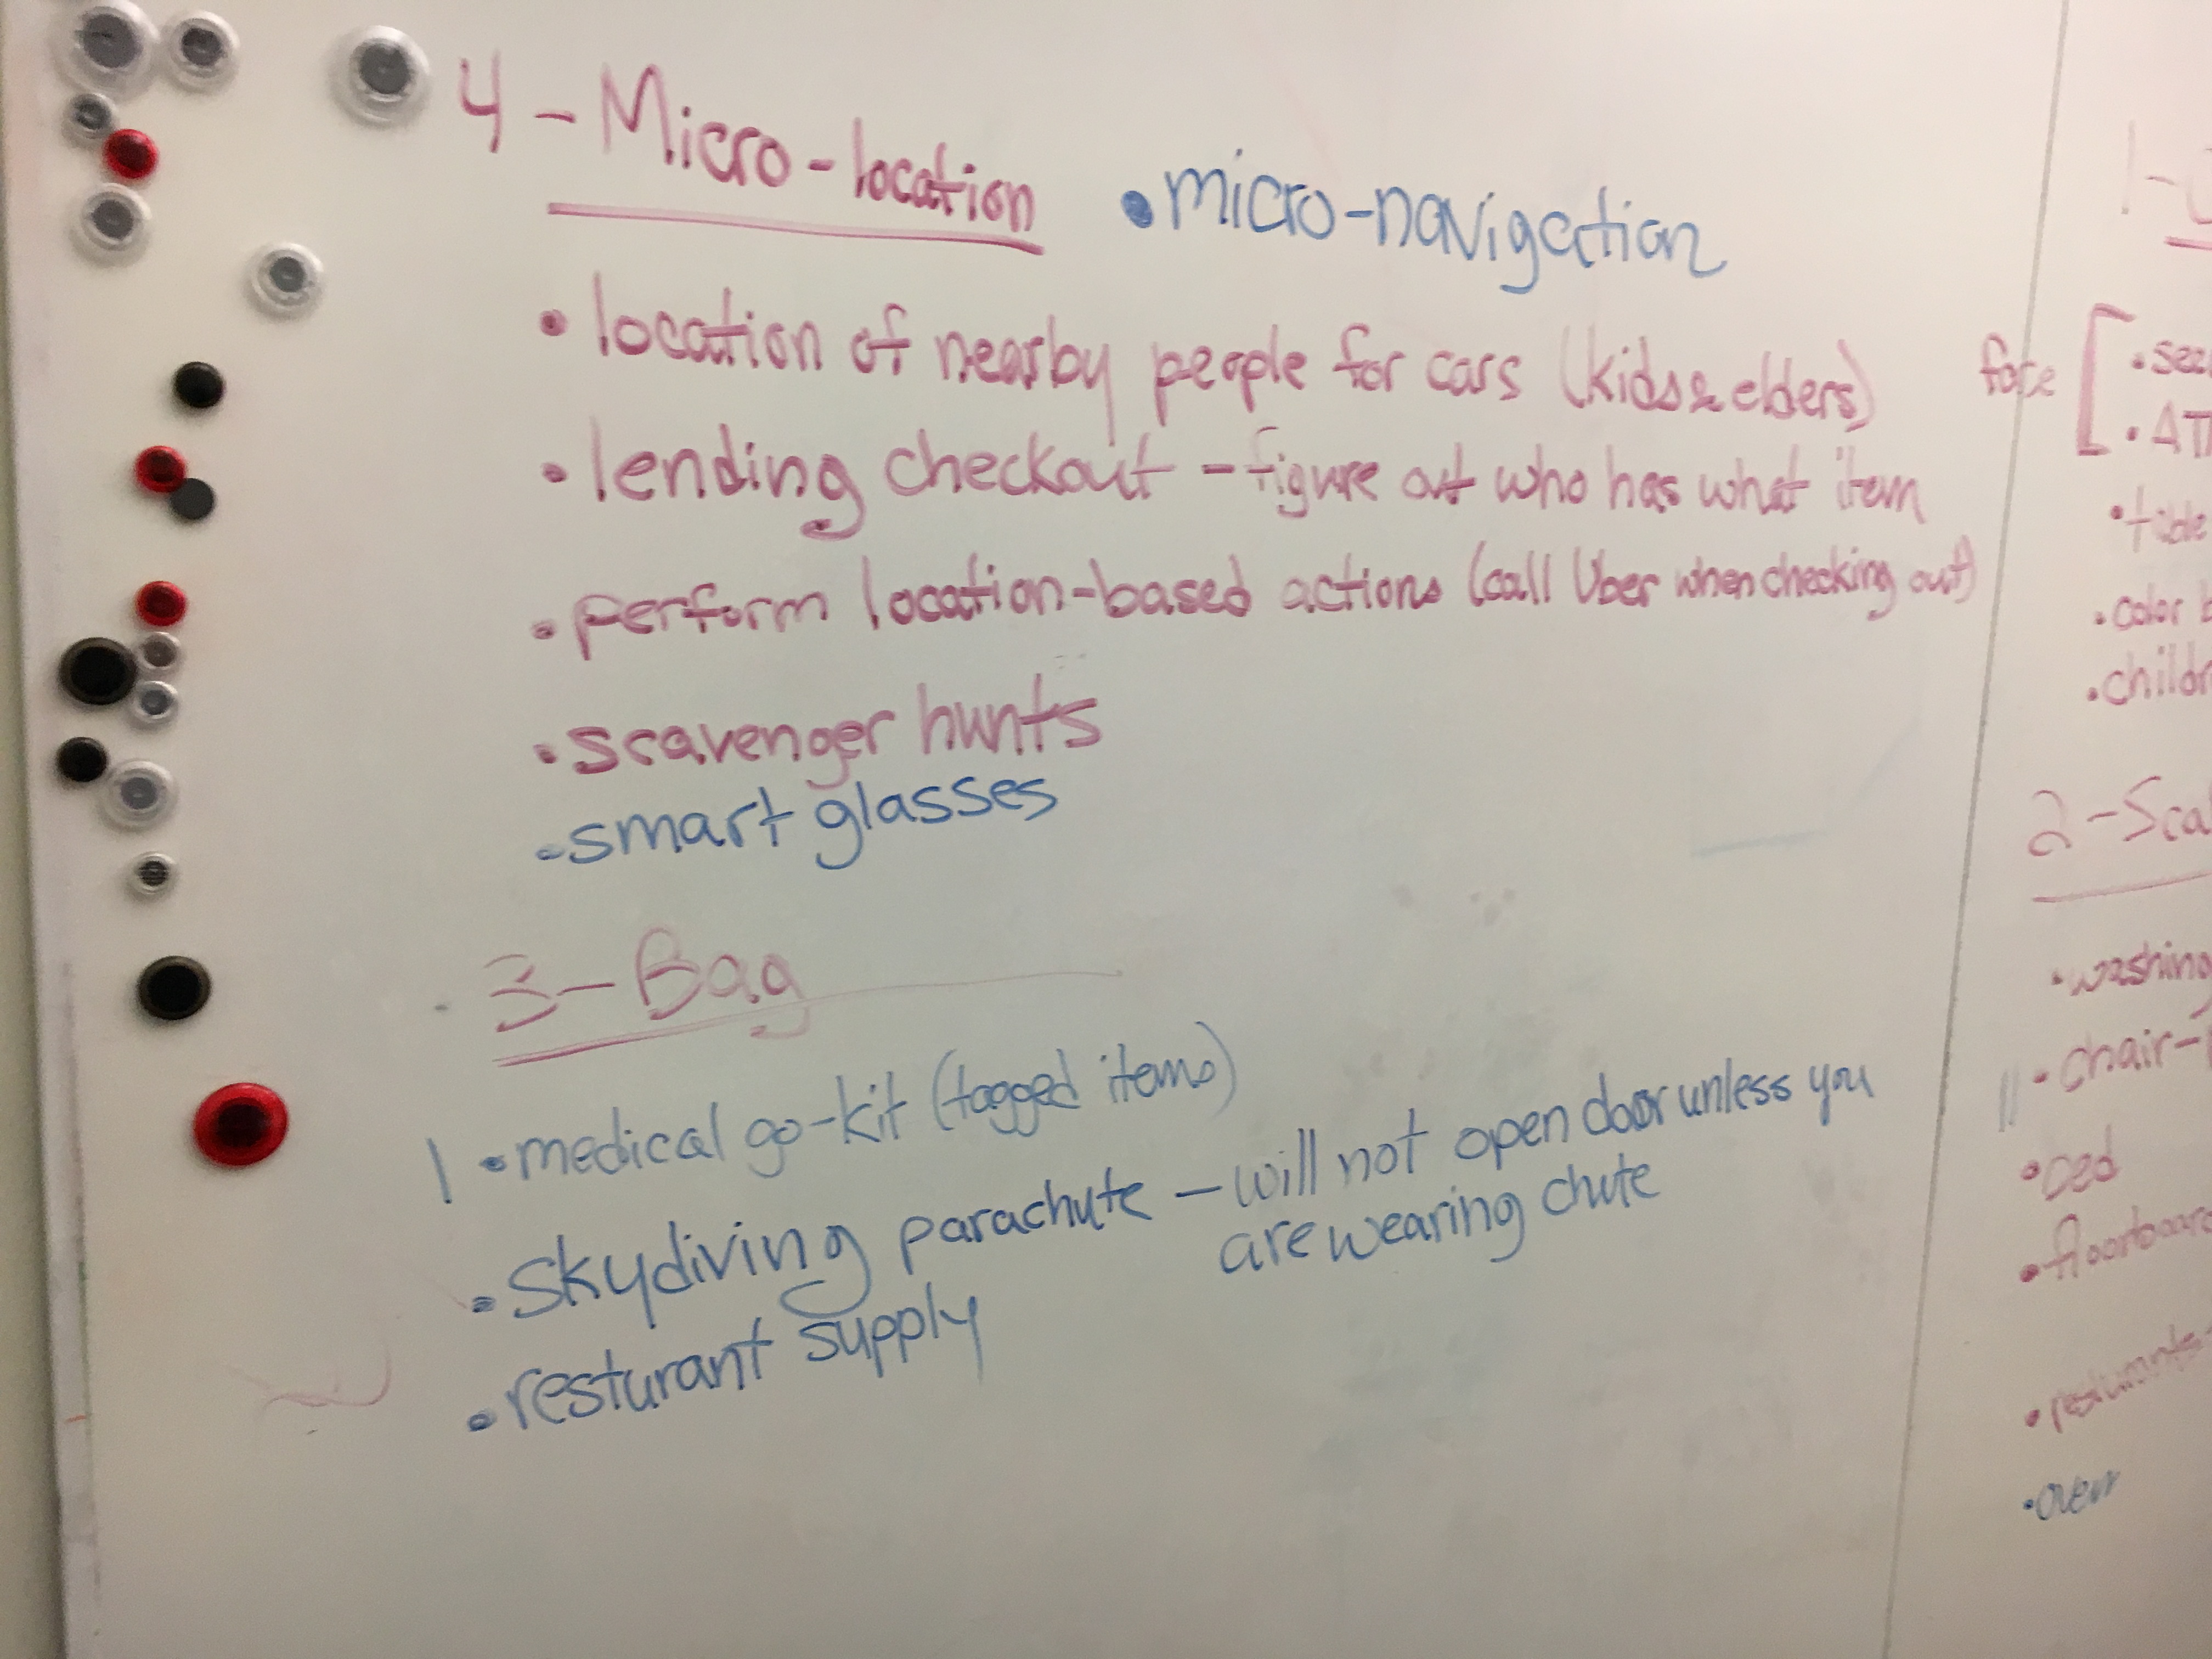 4 - Micro-location
• micro-navigation
• location of nearby people for cars (kids & elders)
• lending checkout - figure out who has what item
• perform location-based actions (call Uber when checking out)
• scavenger hunts
• smart glasses
3 - Bag
| • medical go-kit (tagged items)
• skydiving parachute — will not open door unless you
are wearing chute
• resturant supply
1 -
• ATM
• table
• color b
• childr
2 - Scal
• washing
|| • chair -
• floorboard
• resturants